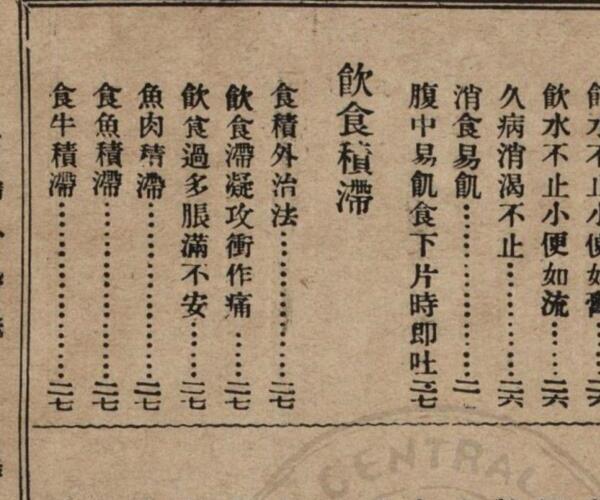 飲水不止小便如
飲水不止小便如流……二六
久病消渴不止……二六
消食易飢……二
腹中易飢食下片時即吐…二七
飲食積滯
食積外治法……二七
飲食滯凝攻衝作痛……二七
飲食過多脹滿不安……二七
魚肉積滯……二七
食魚積滯……二七
食牛積滯……二七
CENTRAL